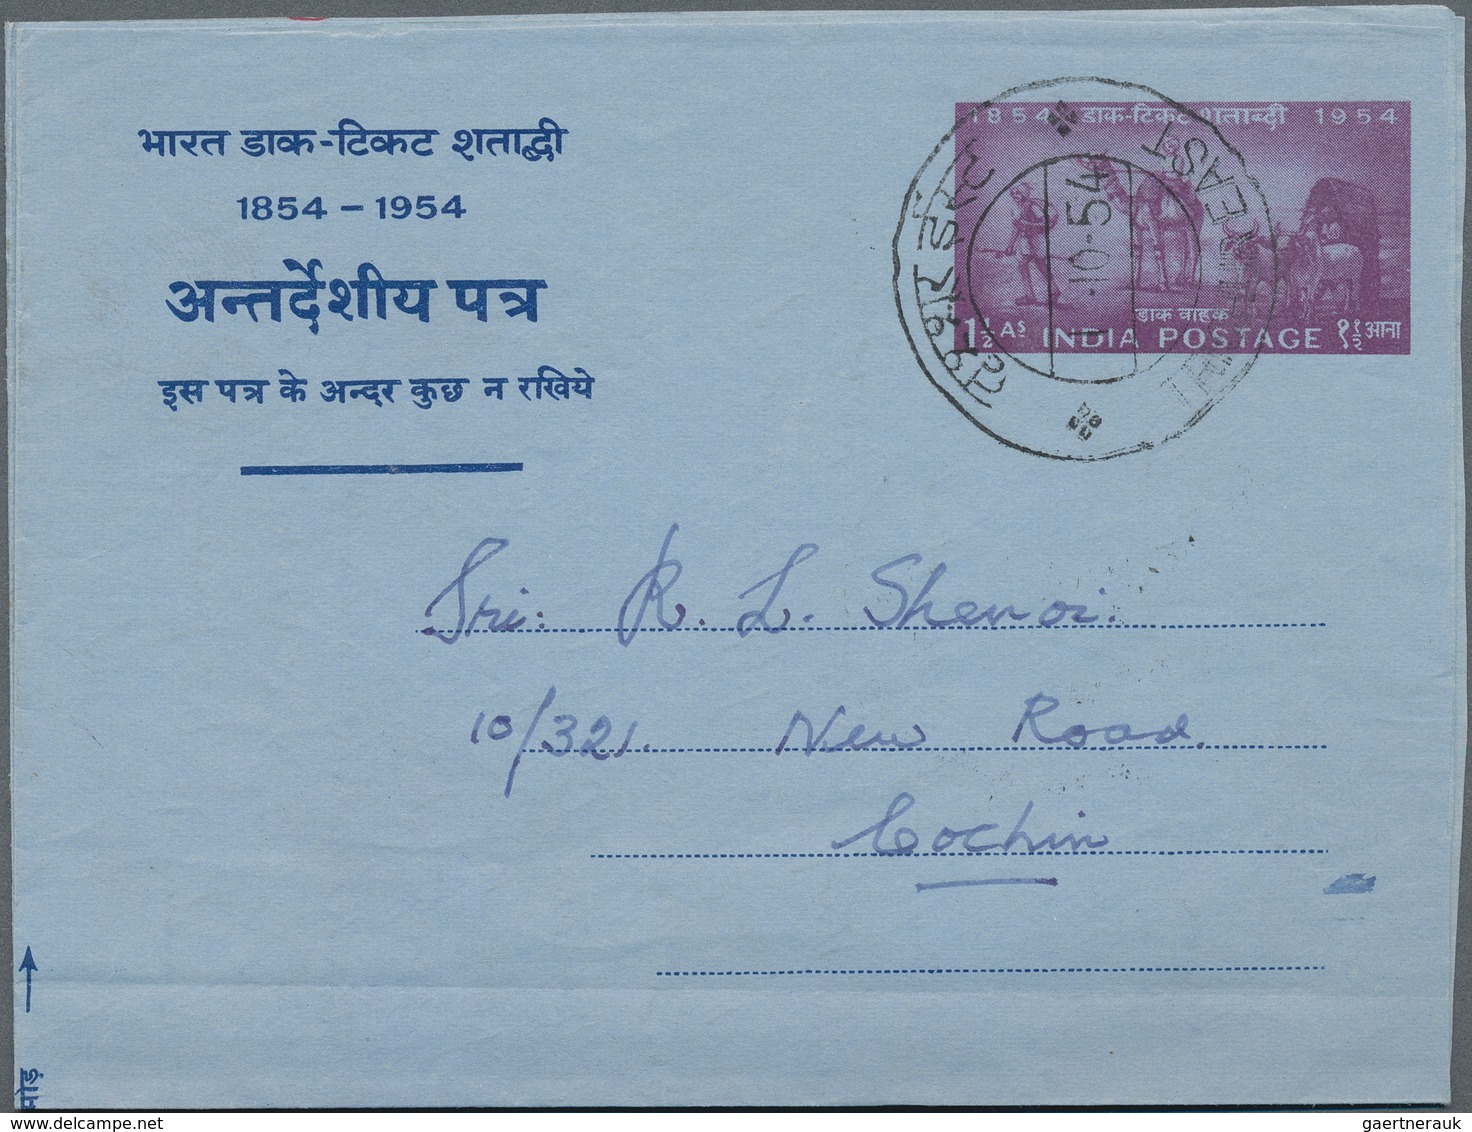 भारत डाक-टिकट शताब्दी
1854 - 1954
अन्तर्देशीय पत्र
इस पत्र के अन्दर कुछ न रखिये
1854 डाक-टिकट शताब्दी 1954
डाक वाहक
1½ AS INDIA POSTAGE १½ आना
EAST
1-10-54
Sri: R. L. Shenoi.
10/321. New Road.
Cochin
मोड़
gaertnerauk @ delcampe.net